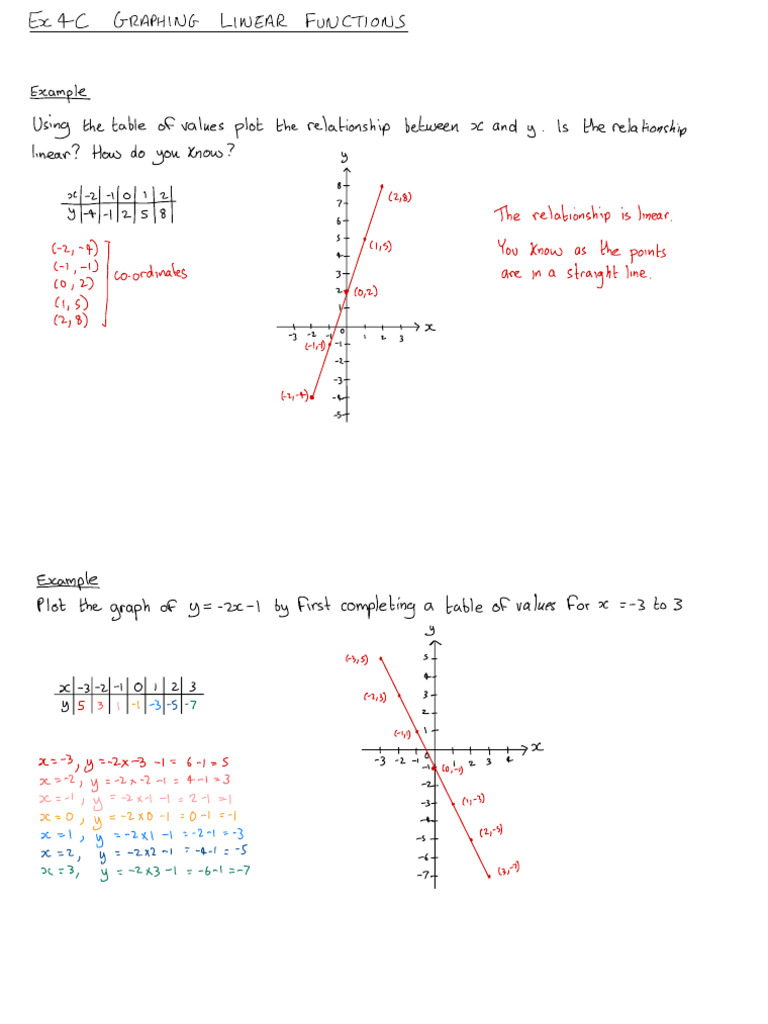 Ex 4C GRAPHING LINEAR FUNCTIONS
Example
Using the table of values plot the relationship between x and y. Is the relationship
linear? How do you know?
x | -2 | -1 | 0 | 1 | 2
y | -4 | -1 | 2 | 5 | 8
(-2, -4)
(-1, -1)
(0, 2)
(1, 5)
(2, 8)
co-ordinates
y
8
7
6
5
4
3
2
1
0
-1
-2
-3
-4
-5
-3 -2 -1 1 2 3 x
(2,8)
(1,5)
(0,2)
(-1,-1)
(-2,-4)
The relationship is linear.
You know as the points
are in a straight line.
Example
Plot the graph of y = -2x - 1 by first completing a table of values for x = -3 to 3
x | -3 | -2 | -1 | 0 | 1 | 2 | 3
y | 5 | 3 | 1 | -1 | -3 | -5 | -7
x = -3, y = -2 x -3 - 1 = 6 - 1 = 5
x = -2, y = -2 x -2 - 1 = 4 - 1 = 3
x = -1, y = -2 x -1 - 1 = 2 - 1 = 1
x = 0, y = -2 x 0 - 1 = 0 - 1 = -1
x = 1, y = -2 x 1 - 1 = -2 - 1 = -3
x = 2, y = -2 x 2 - 1 = -4 - 1 = -5
x = 3, y = -2 x 3 - 1 = -6 - 1 = -7
y
5
4
3
2
1
0
-1
-2
-3
-4
-5
-6
-7
-3 -2 -1 1 2 3 4 x
(-3,5)
(-2,3)
(-1,1)
(0,-1)
(1,-3)
(2,-5)
(3,-7)